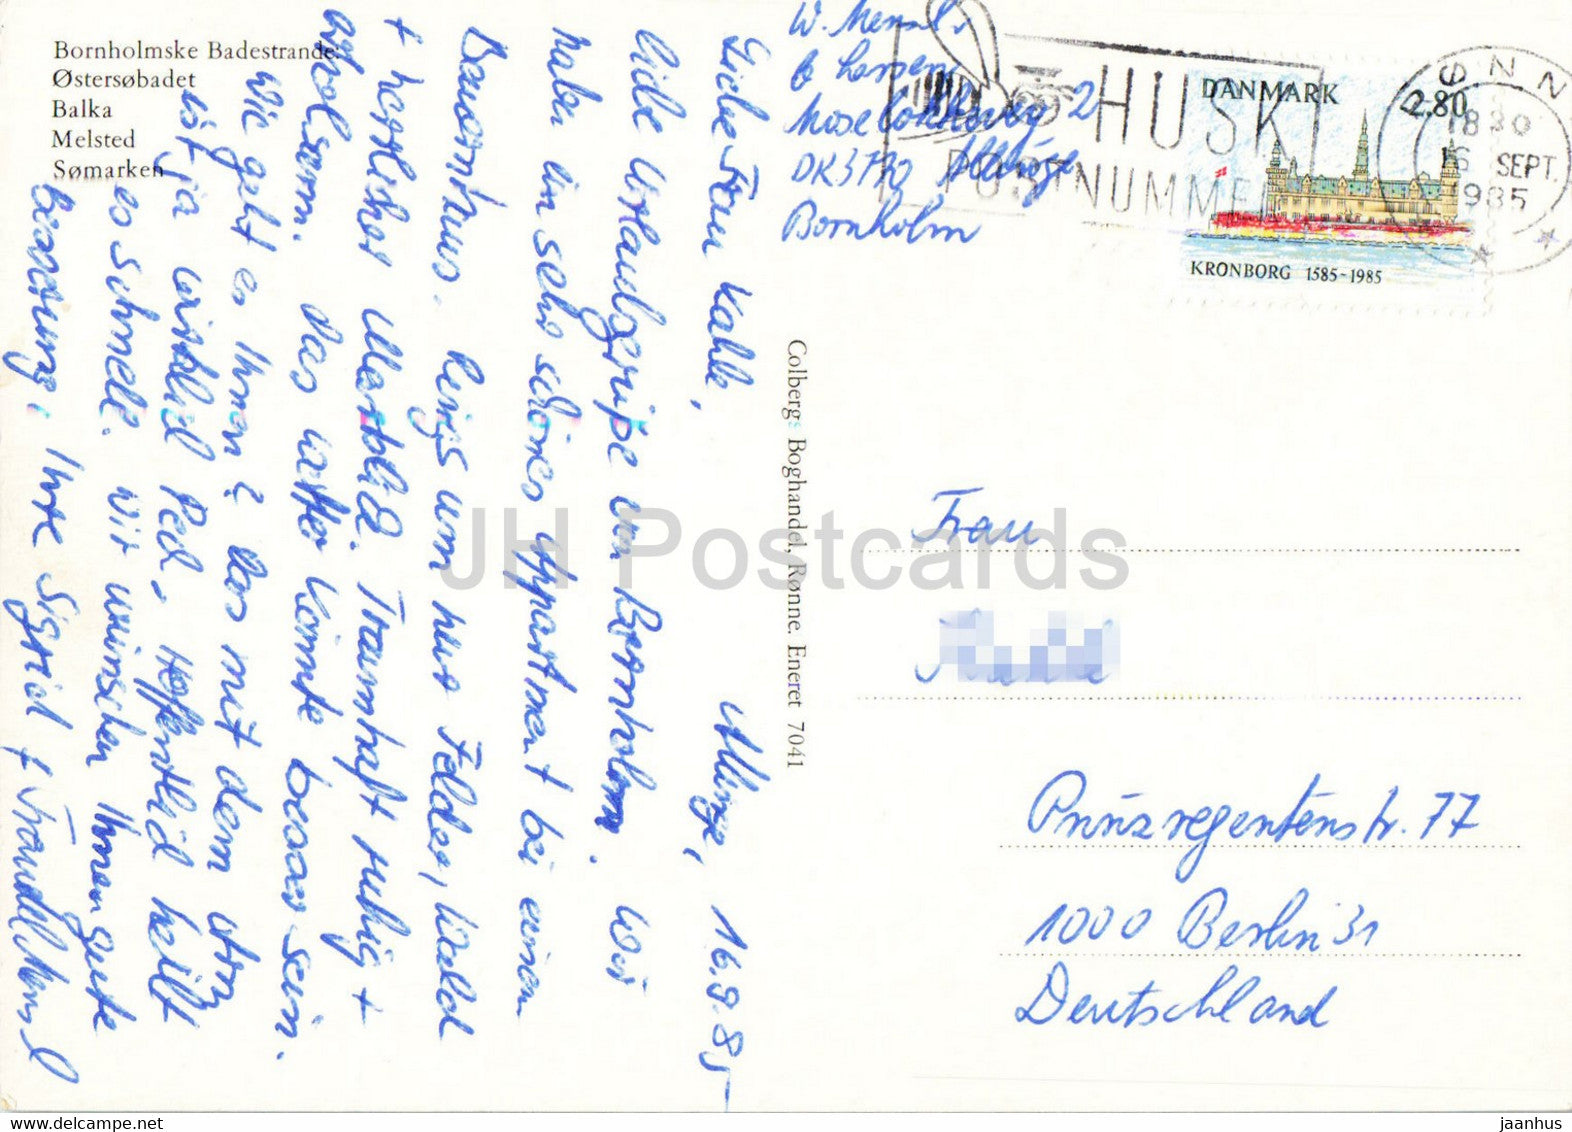 Bornholmske Badestrande:
Østersøbadet
Balka
Melsted
Sømarken
W. Mensel
b Larsen
2
DK 3770 Allinge
Bornholm
HUSK
POSTNUMMER
DANMARK
2.80
KRONBORG 1585-1985
RØNNE
1830
16 SEPT.
1985
Allinge, 16.9.85
Liebe Frau
liebe Urlaubsgrüße von Bornholm. Wir
haben ein sehr schönes Appartment bei einem
Bauernhaus. Rings um nur Felder, Wald
+ herrlicher Meerblick. Traumhaft ruhig +
erholsam. Das Wetter könnte besser sein.
Wie geht es Ihnen? Das mit dem Arm
ist ja wirklich Pech, hoffentlich heilt
es schnell. Wir wünschen Ihnen gute
Besserung, Ihre Sigrid +
Colbergs Boghandel, Rønne. Eneret 7041
Frau
Prinzregentenstr. 77
1000 Berlin 31
Deutschland
JH Postcards
www.delcampe.net
jaanhus